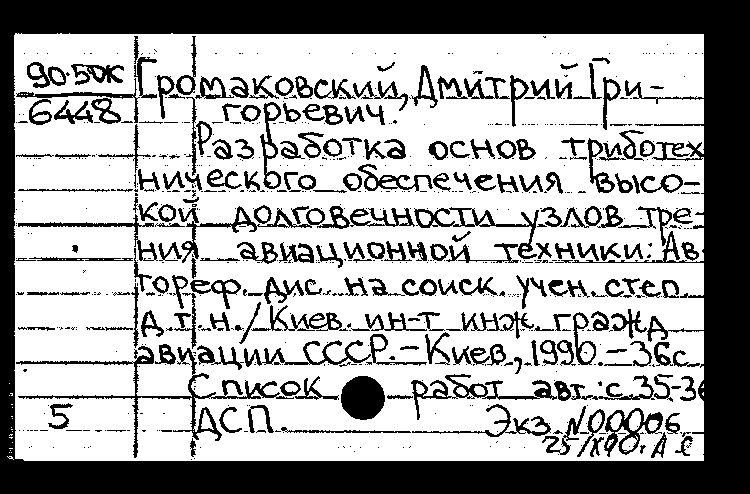 90-50К
6448
Громаковский, Дмитрий Гри-
горьевич.
Разработка основ триботех
нического обеспечения высо-
кой долговечности узлов тре-
ния авиационной техники: Ав-
тореф. дис. на соиск. учен. степ.
д.т.н./Киев. ин-т инж. гражд.
авиации СССР.-Киев, 1990.-36с
Список работ авт.: с.35-36
5 ДСП. Экз. №00006
25/IX90г.